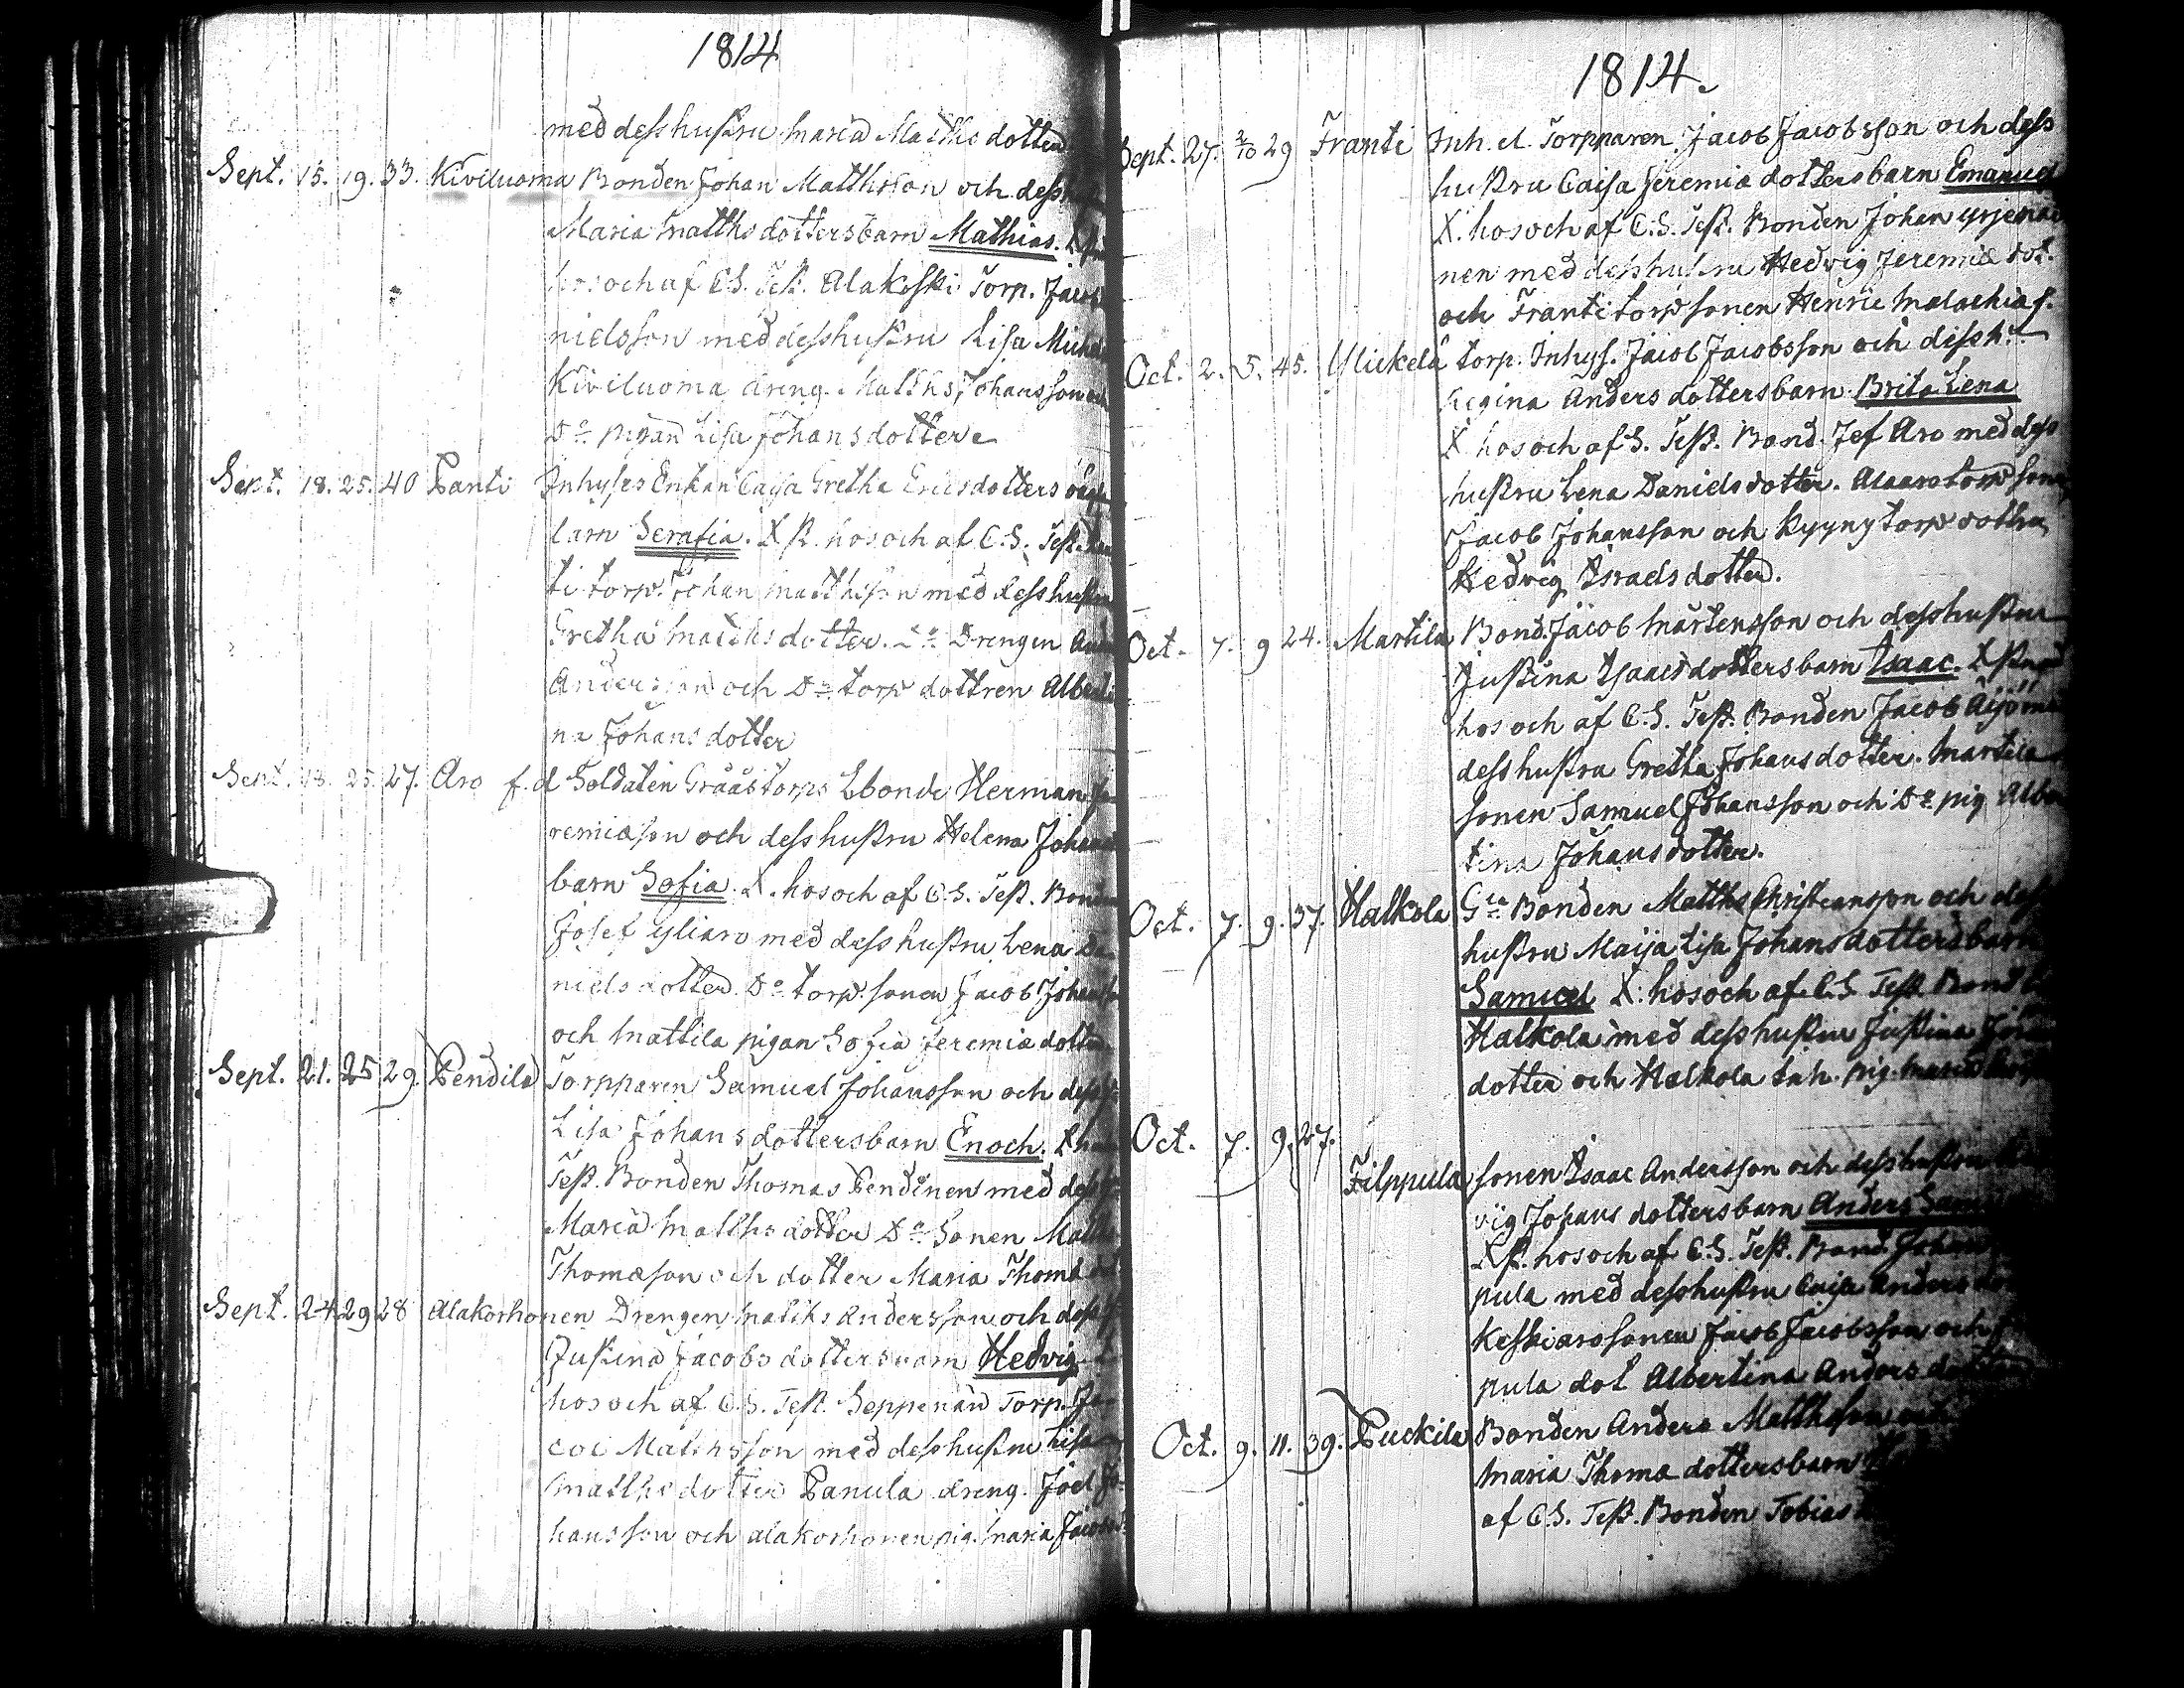 1814
med dess hustru Maria Matths dotter
Sept. 15. 19. 33. Kiviluoma Bonden Johan Matthsson och dess
Maria Matths dotters barn Mathias.
hos och af C.S. Test. Alakoski Torp. Jacob
nielsson med dess hustru Lisa
Kiviluoma dreng. Matths Johansson och
Do pigan Lisa Johansdotter
Sept. 18. 25. 40 Panti Inhyses Enkan Caisa Gretha Ericsdotters
barn Serafia. X st. hos och af C.S. Test.
ti torp. Johan Matthsson med dess hustru
Gretha Matthsdotter. Do Drengen
Andersson och Do torp dottren Alberti
na Johans dotter
Sept. 18. 25. 27. Aro f. d Soldaten Gråås torps Åbonde Herman
remiæson och dess hustru Helena
barn Sofia. X. hos och af C.S. Test. Bonden
Josef Yliaro med dess hustru Lena Da
niels dotter. Do torp. sonen Jacob
och Mattila pigan Sofia Jeremiæ dotter
Sept. 21. 25 29. Pendilä Torpparen Samuel Johansson och dess
Lisa Johans dotters barn Enoch.
Test. Bonden Thomas Pendinen med dess
Maria Matths dotter Do Sonen
Thomæson och dotter Maria
Sept. 24 29 28 Alakorhonen Drengen Matths Andersson och dess
Justina Jacobs dotters barn Hedvig
hos och af C.S. Test. Seppenän Torp.
cob Matthsson med dess hustru Lisa
Matths dotter Panula dreng. Joel Jo
hansson och Alakorhonen pig. Maria
1814.
Sept. 27. 2/10 29 Franti Inh. el. Torpparen Jacob Jacobsson och dess
hustru Caisa Jeremiæ dotters barn Emanuel
X. hos och af C.S. Test. Bonden Johan
nen med dess hustru Hedvig Jeremiæ dot.
och Franti torp sonen Henric Malachias.
Oct. 2. 5. 45. torp. Inhys. Jacob Jacobsson och dess h.
Regina Anders dotters barn Brita Lena
X hos och af S. Test. Bond. Jos Aro med dess
hustru Lena Daniels dotter. Alaaro torp sonen
Jacob Johansson och Kyyny torp dottren
Hedvig Israels dotter.
Oct. 7. 9 24. Martila Bond. Jacob Mårtensson och dess hustru
Justina Isaacs dotters barn Isaac.
hos och af C.S. Test. Bonden Jacob
dess hustru Gretha Johansdotter. Martila
sonen Samuel Johansson och Do pig Alber
tina Johans dotter.
Oct. 7. 9. 37. Halkola Gla Bonden Matths Christiansson och dess
hustru Maija Lisa Johans dotters barn
Samuel X. hos och af C.S. Test. Bond
Halkola med dess hustru Justina
dotter och Halkola inh. pig. Maria
Oct. 7. 9. 27.
Filppula sonen Isaac Andersson och dess hustru
vig Johans dotters barn Anders
X st. hos och af C.S. Test. Bond. Johan
pula med dess hustru Caisa Anders
Keskiaro sonen Jacob Jacobsson och
pula dot Albertina Anders dotter
Oct. 9. 11. 39. Puckila Bonden Anders Matthsson och
Maria Thomæ dotters barn
af C.S. Test. Bonden Tobias